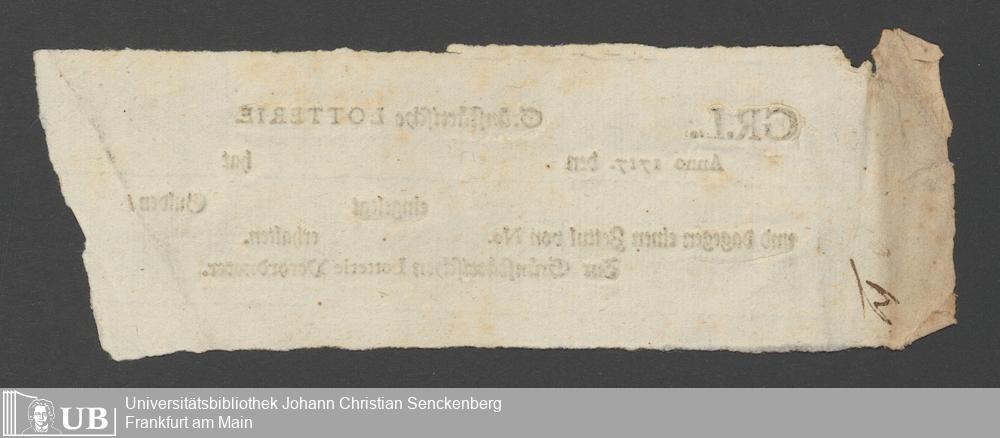 GR.L.: Grünsbdretische LOTTERIE
Anno 1717. den hat
eingelegt Gulden /
und dagegen einen Zettul von No. erhalten.
Zur Lotterie Verordnete.
Universitätsbibliothek Johann Christian Senckenberg
Frankfurt am Main
UB